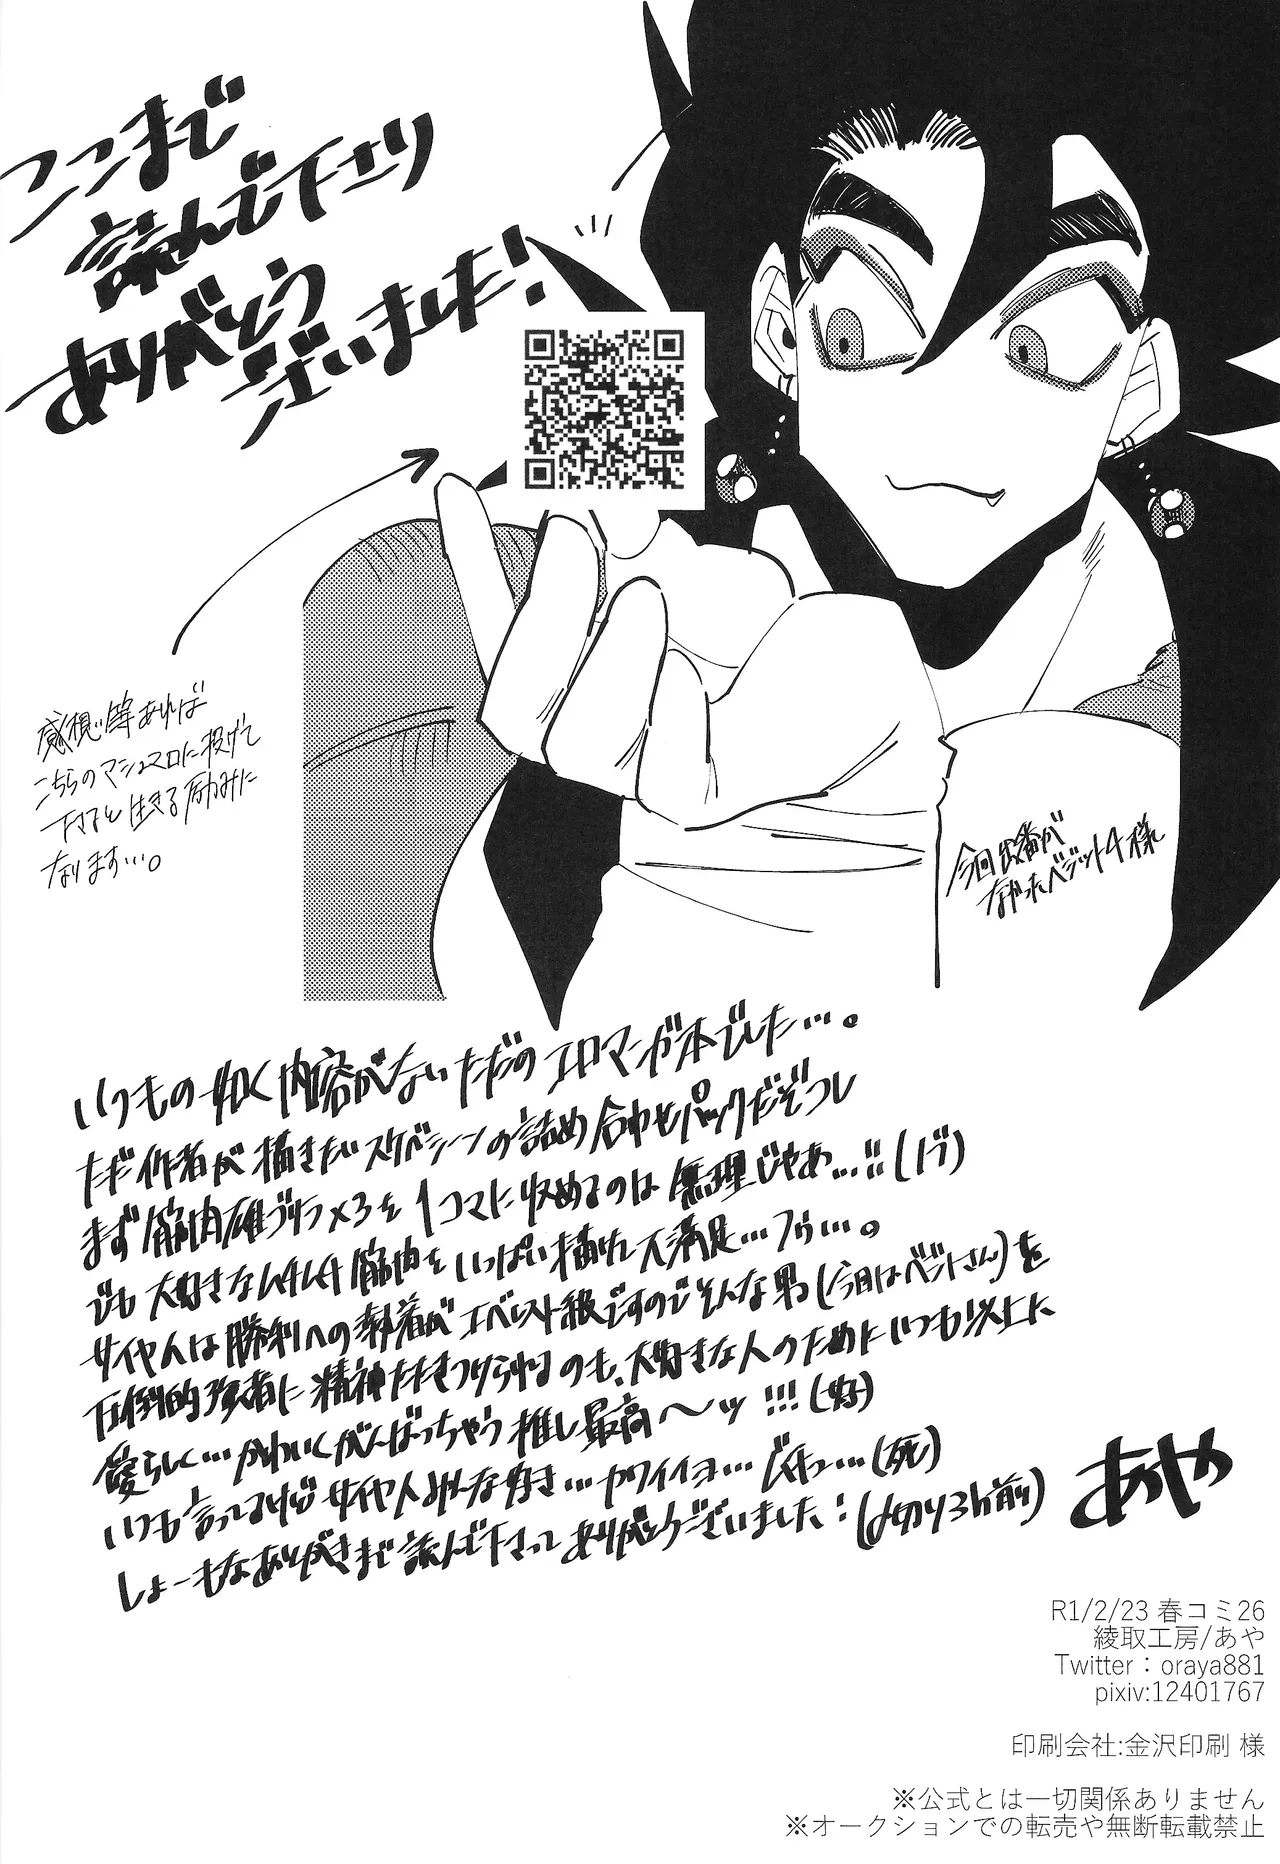 ここまで
読んで下さり
ありがとう
ございました!
感想等あれば
こちらのマシュマロに投げて
下さると生きる励みに
なります…。
今回出番が
なかったベジット4様
いつもの如く内容がないただのエロマンガ本でした…。
ただ作者が描きたいスケベシーンの詰め合わせパックだぞつし
まず筋肉雄ブリフメ3を1コマに収めるのは無理じゃぁ…!!
でも大好きなムチムチ筋肉をいっぱい描けて大満足…フゥ…。
サイヤ人は勝利への執着がエベレスト級ですのでそんな男(今日はベジットさん)を
圧倒的強者に精神たたきつけられるのも、大好きな人のためにいつも以上に
愛らしく…かわいくがんばっちゃう推し最高〜ッ!!!(好)
いつも言ってるけどサイヤ人みんな好き…カワイイヨ…(死)
しょーもなあとがきまで読んで下さってありがとうございました!(〆切り3h前)
あや
R1/2/23 春コミ26
綾取工房/あや
Twitter：oraya881
pixiv:12401767
印刷会社:金沢印刷 様
※公式とは一切関係ありません
※オークションでの転売や無断転載禁止